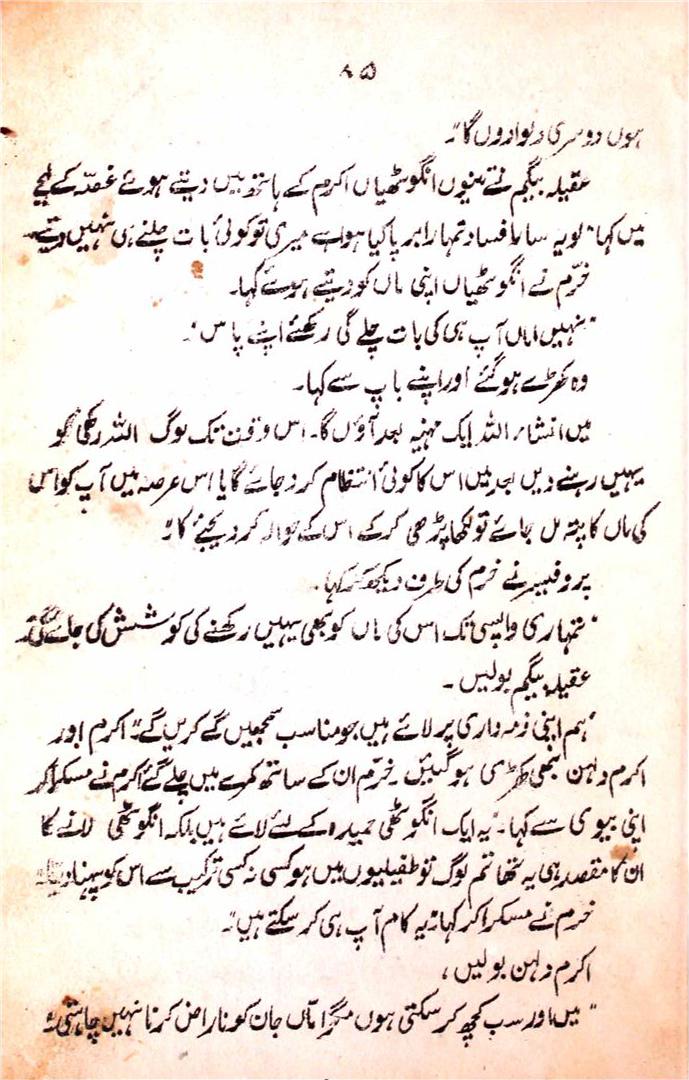 ۸۵
ہوں دوسری دلوا دوں گا"۔
عقیلہ بیگم نے تینوں انگوٹھیاں اکرم کے ہاتھ میں دیتے ہوئے غصّہ کے لہجے
میں کہا "لو یہ سارا فساد تمہارا برپا کیا ہوا ہے میری تو کوئی بات چلنے ہی نہیں دیتے۔
خرّم نے انگوٹھیاں اپنی ماں کو دیتے ہوئے کہا۔
"نہیں اماں آپ ہی کی بات چلے گی رکھئے اپنے پاس"۔
وہ کھڑے ہو گئے اور اپنے باپ سے کہا۔
میں انشاء اللہ ایک مہنیہ بعد آؤں گا۔ اس وقت تک لوگ اللہ رکھی کو
یہیں رہنے دیں بعد میں اس کا کوئی انتظام کر دجائے گا یا اس عرصہ میں آپ کو اس
کی ماں کا پتہ مل جائے تو لکھا پڑھی کر کے اس کے حوالہ کر دیجئے گا"۔
پروفیسر نے خرم کی طرف دیکھ کر کہا۔
"تمہاری واپسی تک اس کی ماں کو بھی یہیں رکھنے کی کوشش کی جائے گی"۔
عقیلہ بیگم بولیں۔
"ہم اپنی ذمہ داری پر لائے ہیں جو مناسب سمجھیں گے کریں گے"۔ اکرم اور
اکرم دلہن بھی کھڑی ہو گئیں۔ خرّم ان کے ساتھ کمرے میں چلے گئے اکرم نے مسکرا کر
اپنی بیوی سے کہا۔ "یہ ایک انگوٹھی حمیدہ کے لئے لائے ہیں بلکہ انگوٹھی لانے کا
ان کا مقصد ہی یہ تھا تم لوگ تو طفیلیوں میں ہو کسی نہ کسی ترکیب سے اس کو پہنا دینا"۔
خرم نے مسکرا کر کہا "یہ کام آپ ہی کر سکتے ہیں"۔
اکرم دلہن بولیں،
"میں اور سب کچھ کر سکتی ہوں مگر امّاں جان کو ناراض کرنا نہیں چاہتی"۔